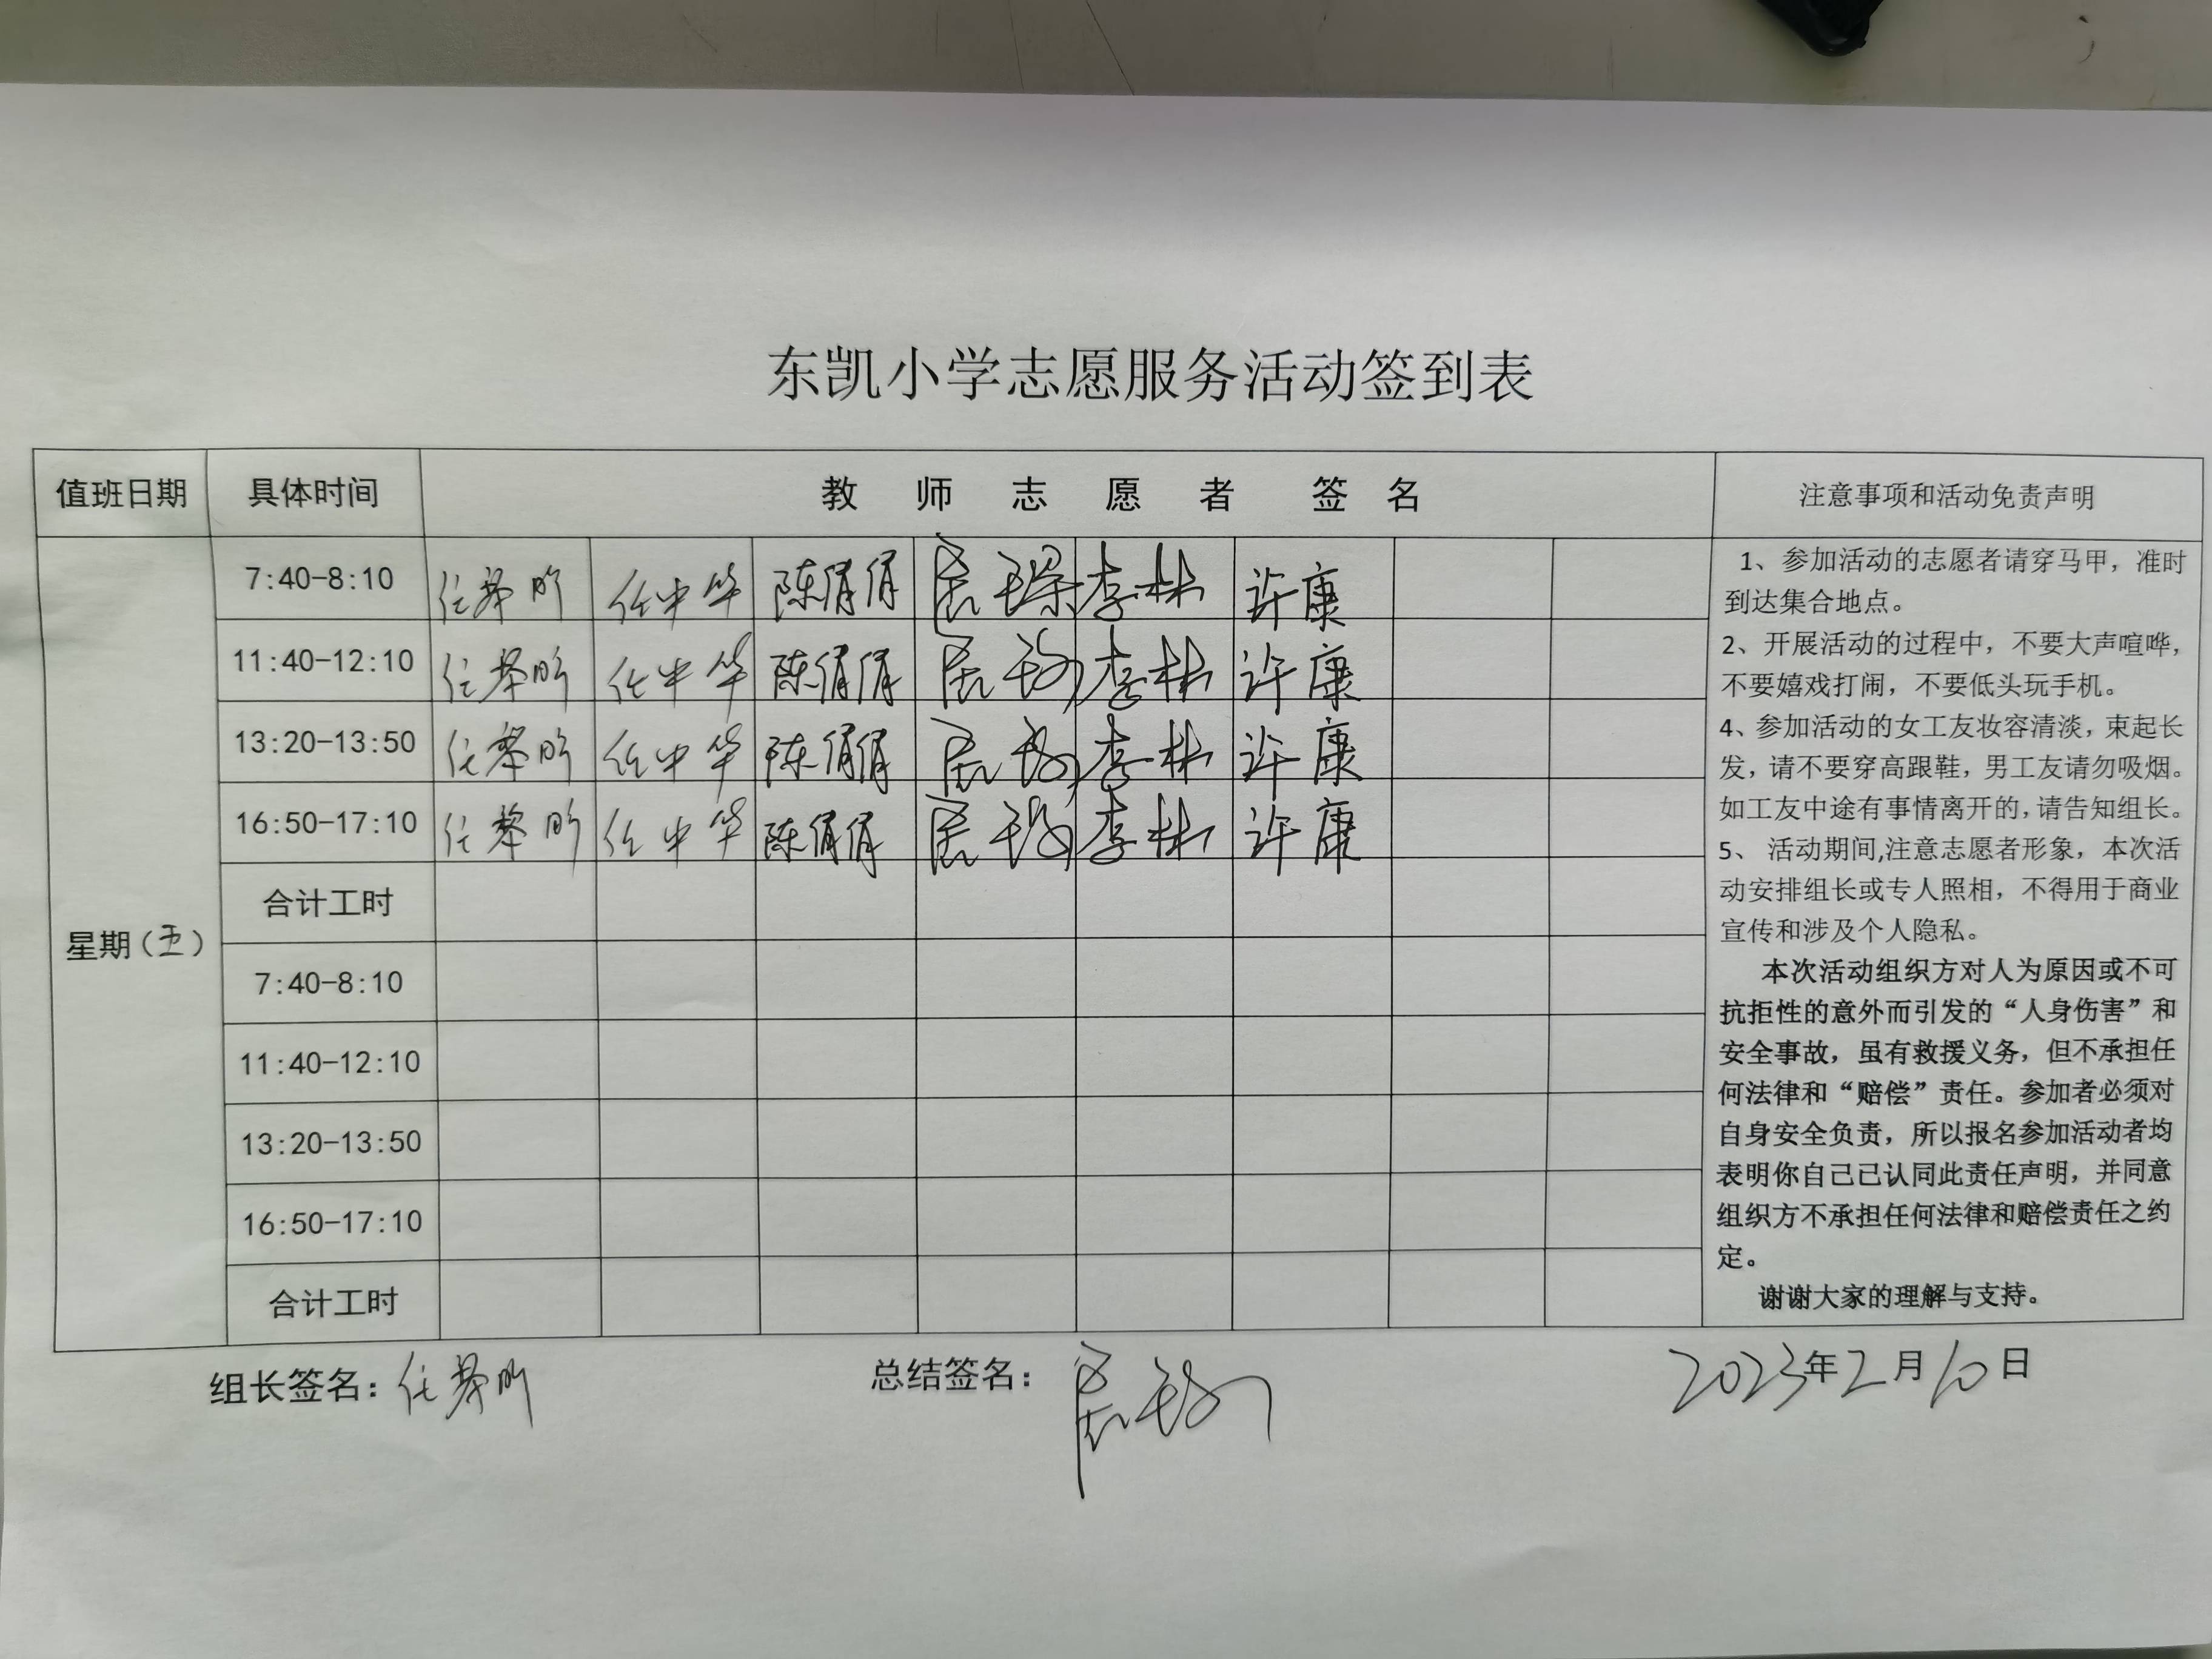 东凯小学志愿服务活动签到表
值班日期 具体时间 教师志愿者签名 注意事项和活动免责声明
星期（五）
7:40-8:10 任 任中华 陈俏俏 李林 许康
11:40-12:10 任 任中华 陈俏俏 李林 许康
13:20-13:50 任 任中华 陈俏俏 李林 许康
16:50-17:10 任 任中华 陈俏俏 李林 许康
合计工时
7:40-8:10
11:40-12:10
13:20-13:50
16:50-17:10
合计工时
1、参加活动的志愿者请穿马甲，准时
到达集合地点。
2、开展活动的过程中，不要大声喧哗，
不要嬉戏打闹，不要低头玩手机。
4、参加活动的女工友妆容清淡，束起长
发，请不要穿高跟鞋，男工友请勿吸烟。
如工友中途有事情离开的，请告知组长。
5、 活动期间,注意志愿者形象，本次活
动安排组长或专人照相，不得用于商业
宣传和涉及个人隐私。
本次活动组织方对人为原因或不可
抗拒性的意外而引发的“人身伤害”和
安全事故，虽有救援义务，但不承担任
何法律和“赔偿”责任。参加者必须对
自身安全负责，所以报名参加活动者均
表明你自己已认同此责任声明，并同意
组织方不承担任何法律和赔偿责任之约
定。
谢谢大家的理解与支持。
组长签名：任 总结签名： 2023年2月10日